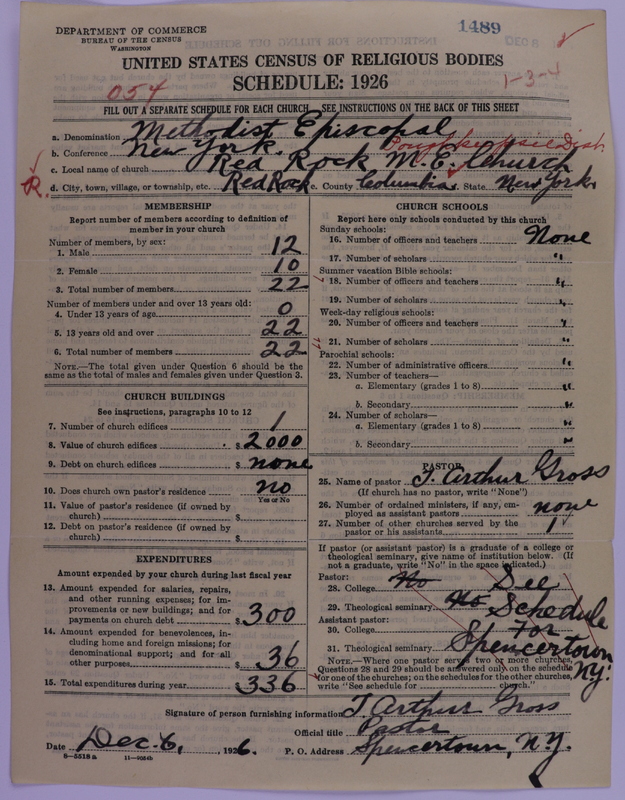 DEPARTMENT OF COMMERCE
BUREAU OF THE CENSUS
WASHINGTON
1489
UNITED STATES CENSUS OF RELIGIOUS BODIES
SCHEDULE: 1926
054
1-3-4
FILL OUT A SEPARATE SCHEDULE FOR EACH CHURCH—SEE INSTRUCTIONS ON THE BACK OF THIS SHEET
a. Denomination Methodist Episcopal
b. Conference New York. Poughkeepsie Dist.
c. Local name of church Red Rock M.E. Church
R. d. City, town, village, or township, etc. Red Rock e. County Columbia f. State New York
MEMBERSHIP
Report number of members according to definition of
member in your church
Number of members, by sex:
1. Male 12
2. Female 10
3. Total number of members 22
Number of members under and over 13 years old:
4. Under 13 years of age 0
5. 13 years old and over 22
6. Total number of members 22
NOTE.—The total given under Question 6 should be
same as the total of males and females given under Question 3.
CHURCH BUILDINGS
See instructions, paragraphs 10 to 12
7. Number of church edifices 1
8. Value of church edifices $ 2000
9. Debt on church edifices $ none
10. Does church own pastor's residence no
Yes or No
11. Value of pastor's residence (if owned by
church) $
12. Debt on pastor's residence (if owned by
church) $
EXPENDITURES
Amount expended by your church during last fiscal year
13. Amount expended for salaries, repairs,
and other running expenses; for im-
provements or new buildings; and for
payments on church debt $ 300
14. Amount expended for benevolences, in-
cluding home and foreign missions; for
denominational support; and for all
other purposes $ 36
15. Total expenditures during year $ 336
CHURCH SCHOOLS
Report here only schools conducted by this church
Sunday schools:
16. Number of officers and teachers None
17. Number of scholars "
Summer vacation Bible schools:
18. Number of officers and teachers "
19. Number of scholars "
Week-day religious schools:
20. Number of officers and teachers "
21. Number of scholars "
Parochial schools:
22. Number of administrative officers "
23. Number of teachers—
a. Elementary (grades 1 to 8) "
b. Secondary "
24. Number of scholars—
a. Elementary (grades 1 to 8) "
b. Secondary "
PASTOR
25. Name of pastor J. Arthur Gross
(If church has no pastor, write "None")
26. Number of ordained ministers, if any, em-
ployed as assistant pastors none
27. Number of other churches served by the
pastor or his assistants 1
If pastor (or assistant pastor) is a graduate of a college or
theological seminary, give name of institution below. (If
not a graduate, write "No" in the space indicated.)
Pastor:
28. College No See
29. Theological seminary No Schedule
Assistant pastor:
30. College for
31. Theological seminary Spencertown
N.Y.
NOTE.—Where one pastor serves two or more churches,
Questions 28 and 29 should be answered only on the schedule
for one of the churches; on the schedules for the other churches,
write "See schedule for church."
Signature of person furnishing information J. Arthur Gross
Official title Pastor
Date Dec. 6, 1926. P. O. Address Spencertown, N.Y.
8-5518a 11-9054b